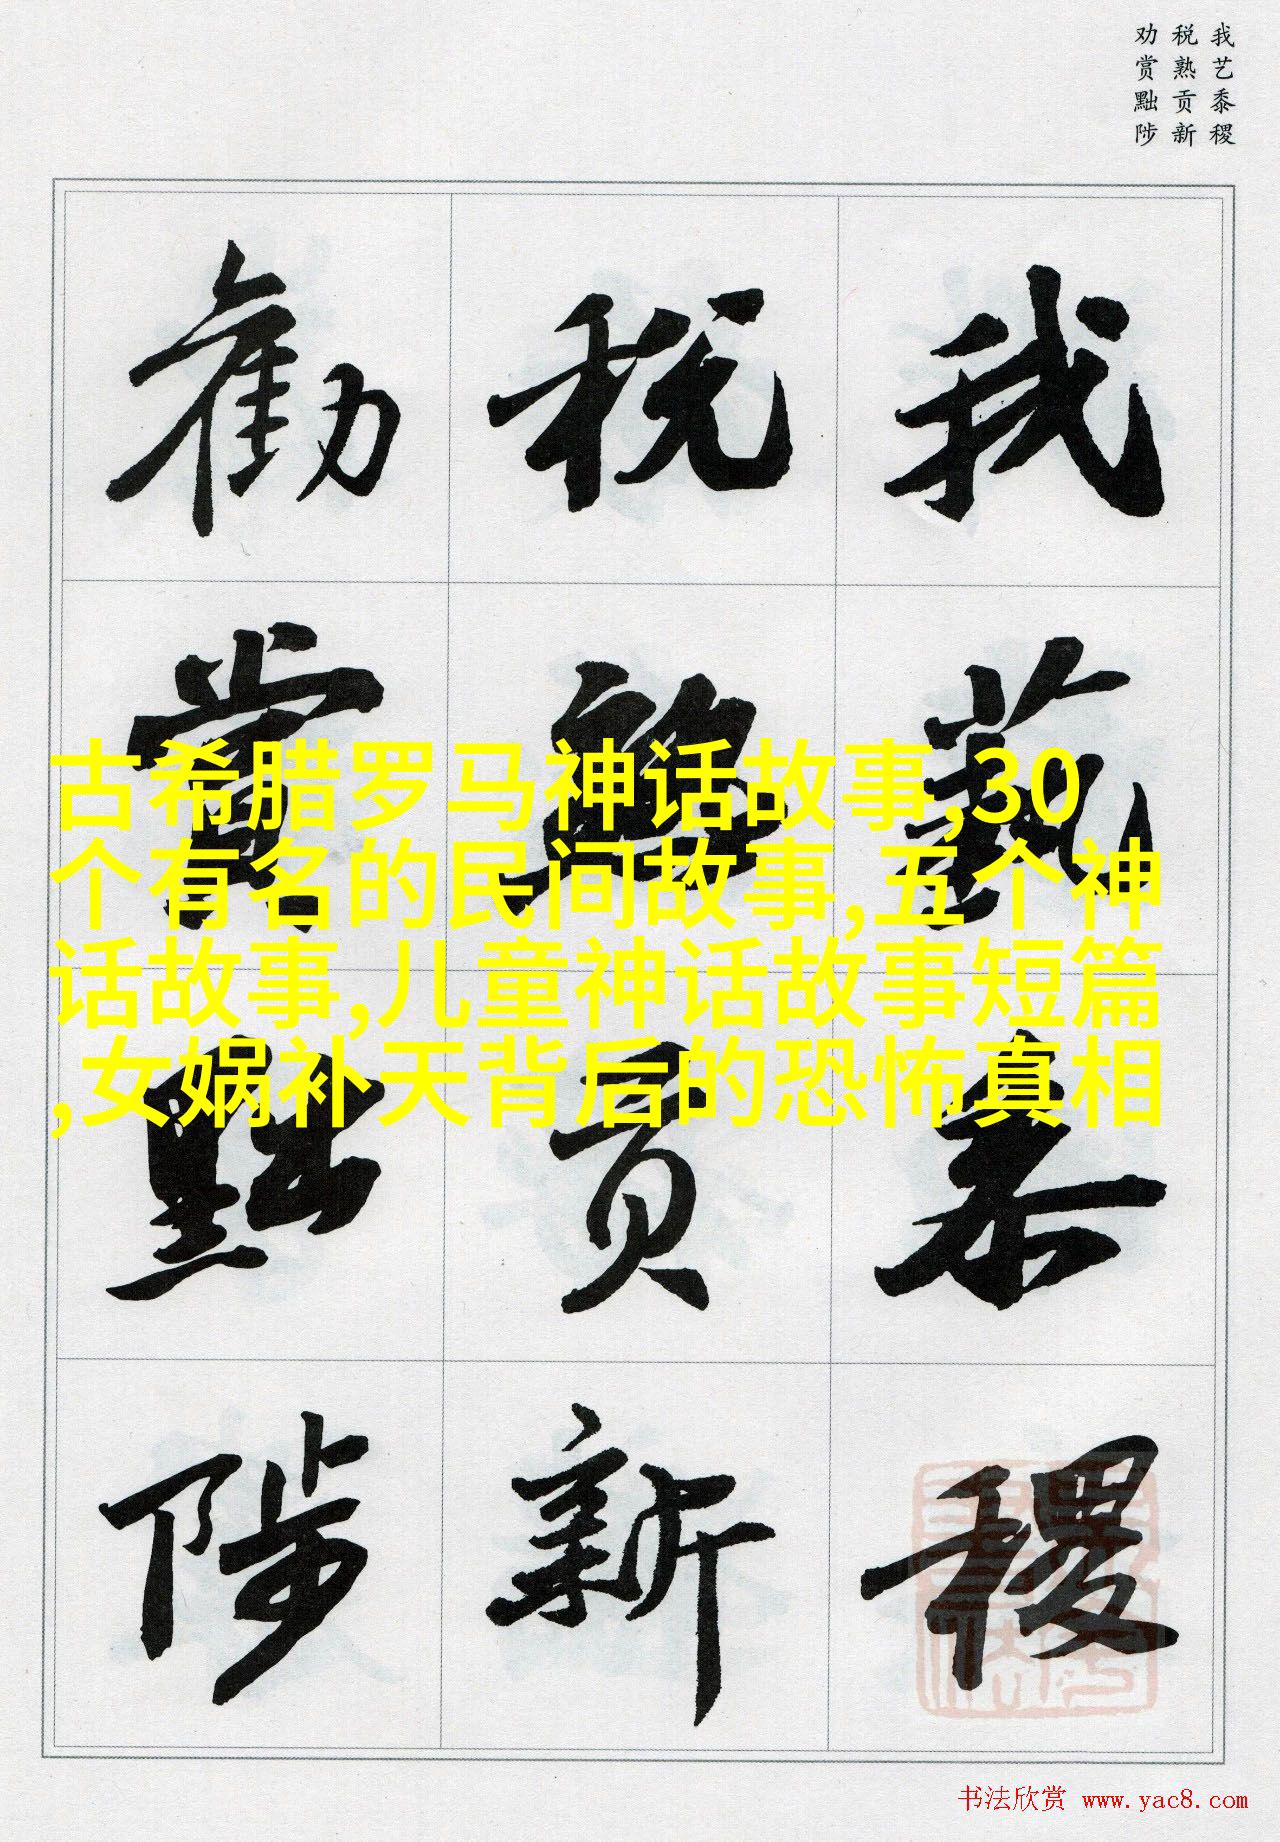 我艺黍稷
税熟贡新
劝赏黜陟
我艺黍稷
税熟贡新
劝赏黜陟
古希腊罗马神话故事,30
个有名的民间故事,五个神
话故事,儿童神话故事短篇
,女娲补天背后的恐怖真相
书法欣赏 www.yac8.com